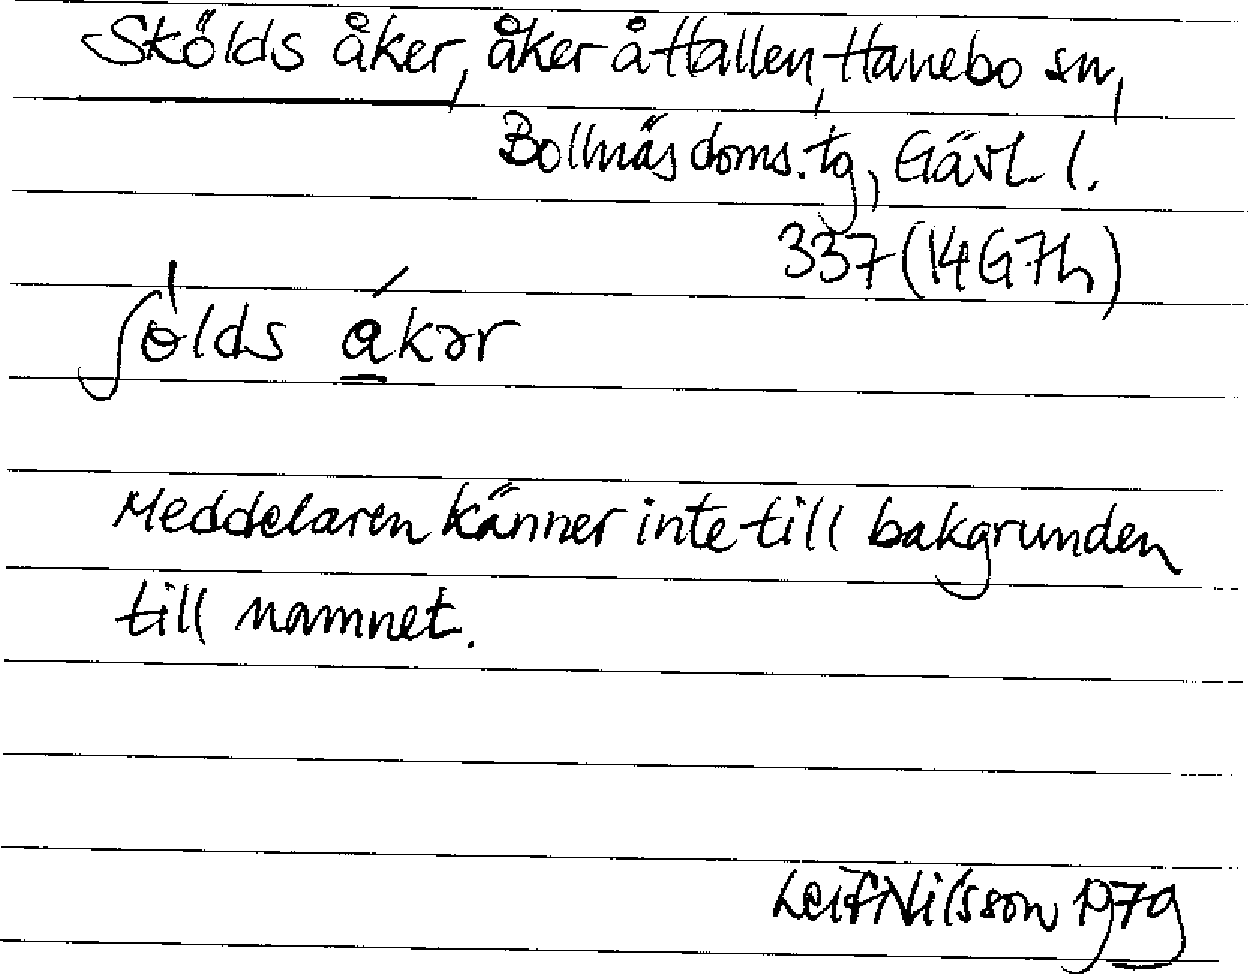 Skölds åker, åker å Hallen, Hanebo sn,
Bollnäs doms. tg, Gävl. l.
337 (14G7h)
ʃɵ̍lds á̱kər
Meddelaren känner inte till bakgrunden
till namnet.
Leif Nilsson 1979